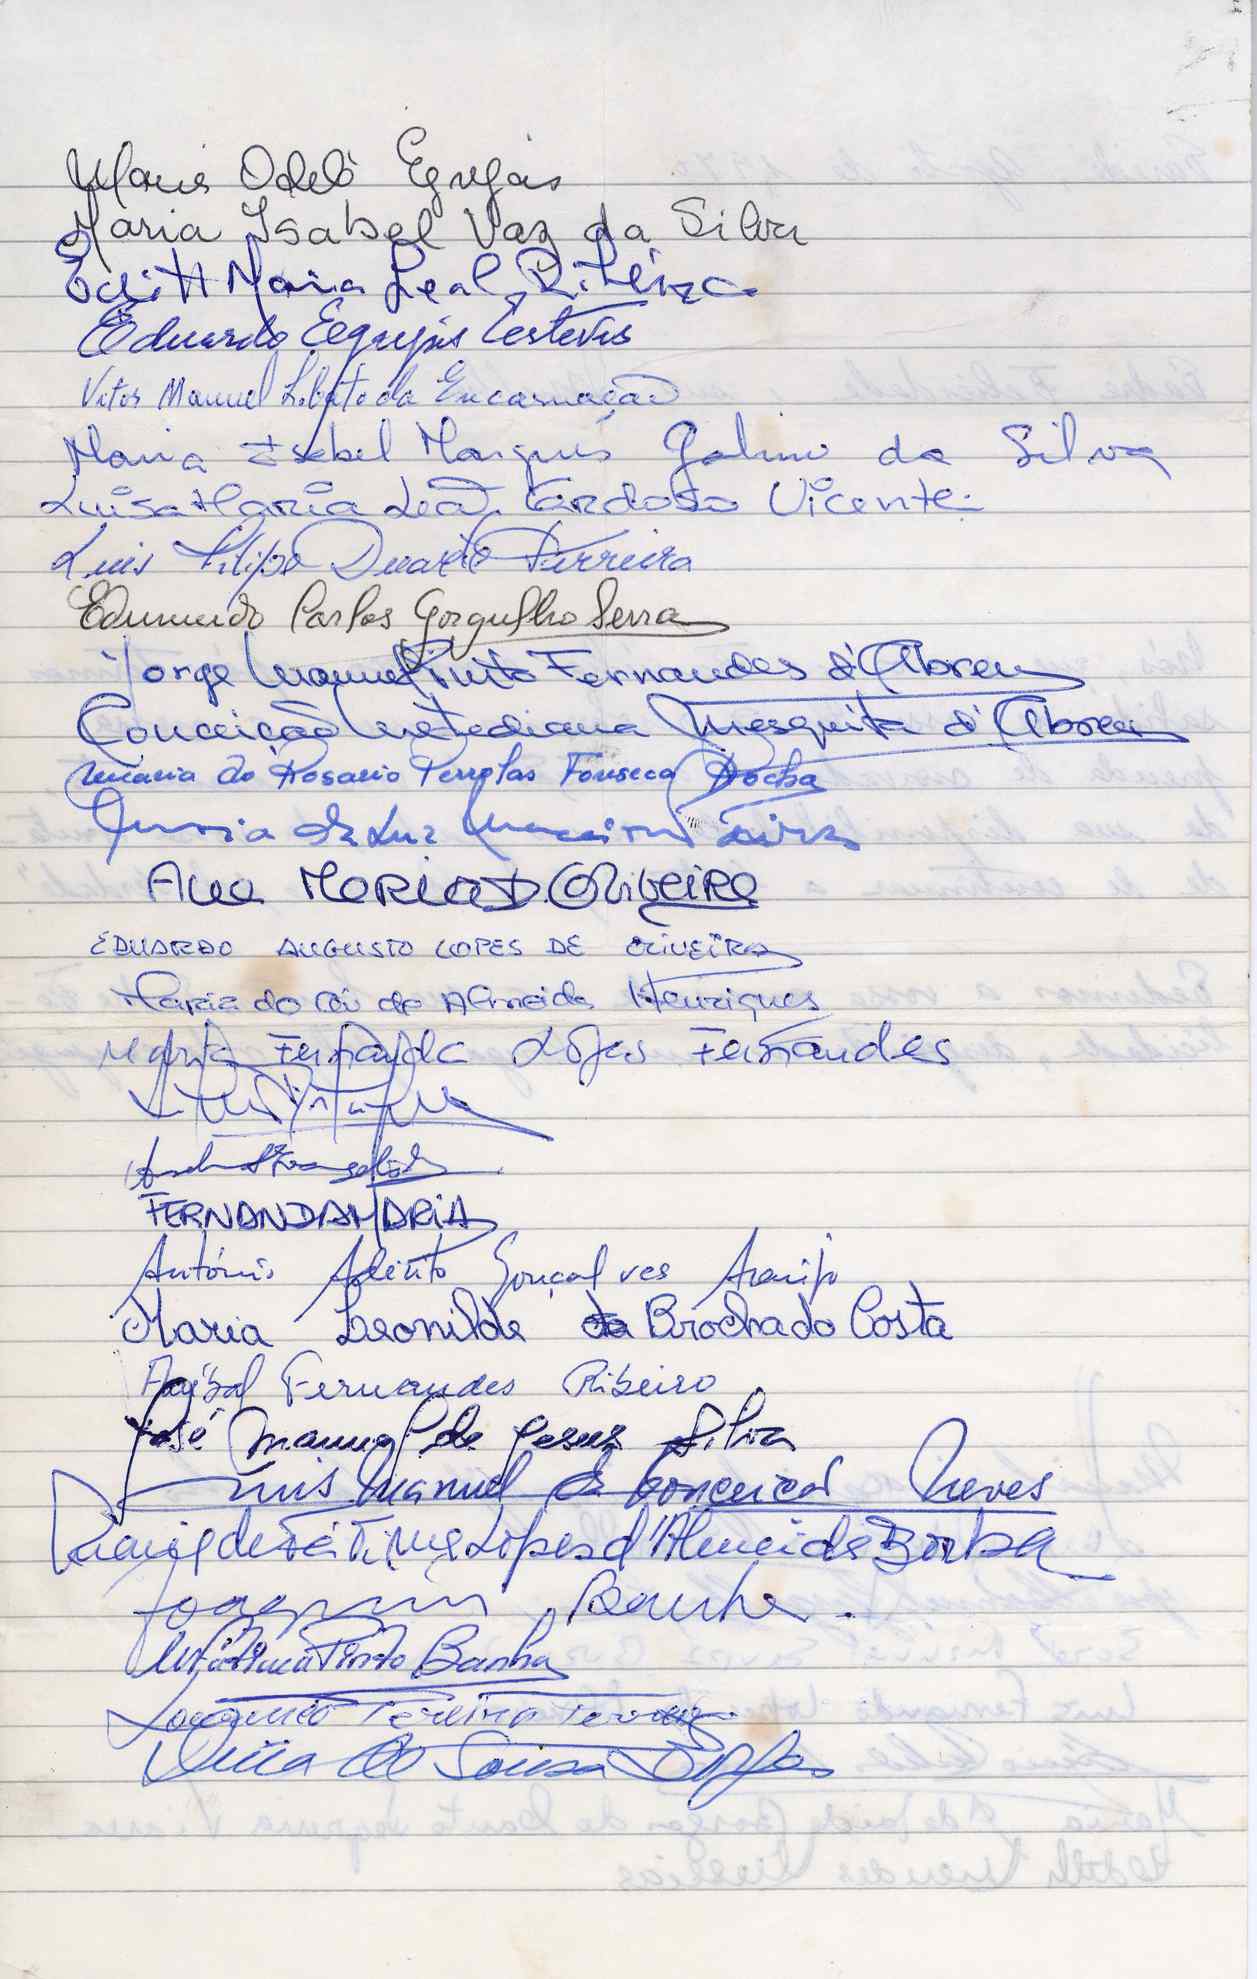 Maria Odelô Egrejas
Maria Isabel Vaz da Silva
Edith Maria Leal
Eduardo Egrejas Esteves
Vitor Manuel Lobato da Encarnação
Maria Isabel Marques Galino da Silva
Luisa Maria Leão Cardoso Vicente
Luis Filipe Duarte Ferreira
Edmundo Carlos Gorgulho Serra
Jorge Manuel Pinto Fernandes d'Abreu
Conceição Mesquita d'Abreu
Maria do Rosario Perrolas Fonseca Rocha
Maria da Luz
Ana Maria D. Oliveira
EDUARDO AUGUSTO LOPES DE OLIVEIRA
Maria do Céu de Almeida Henriques
Maria Fernanda Lopes Fernandes
FERNANDA MARIA
António Gonçalves Araujo
Maria Leonilde da Brochado Costa
Anibal Fernandes Ribeiro
José Manuel de Jesus Silva
Luis Manuel da Conceição Neves
Maria de Fátima Lopes d'Almeida Borba
Joaquim Banha.
Mª Fátima Pinto Banha
Pereira
de Sousa